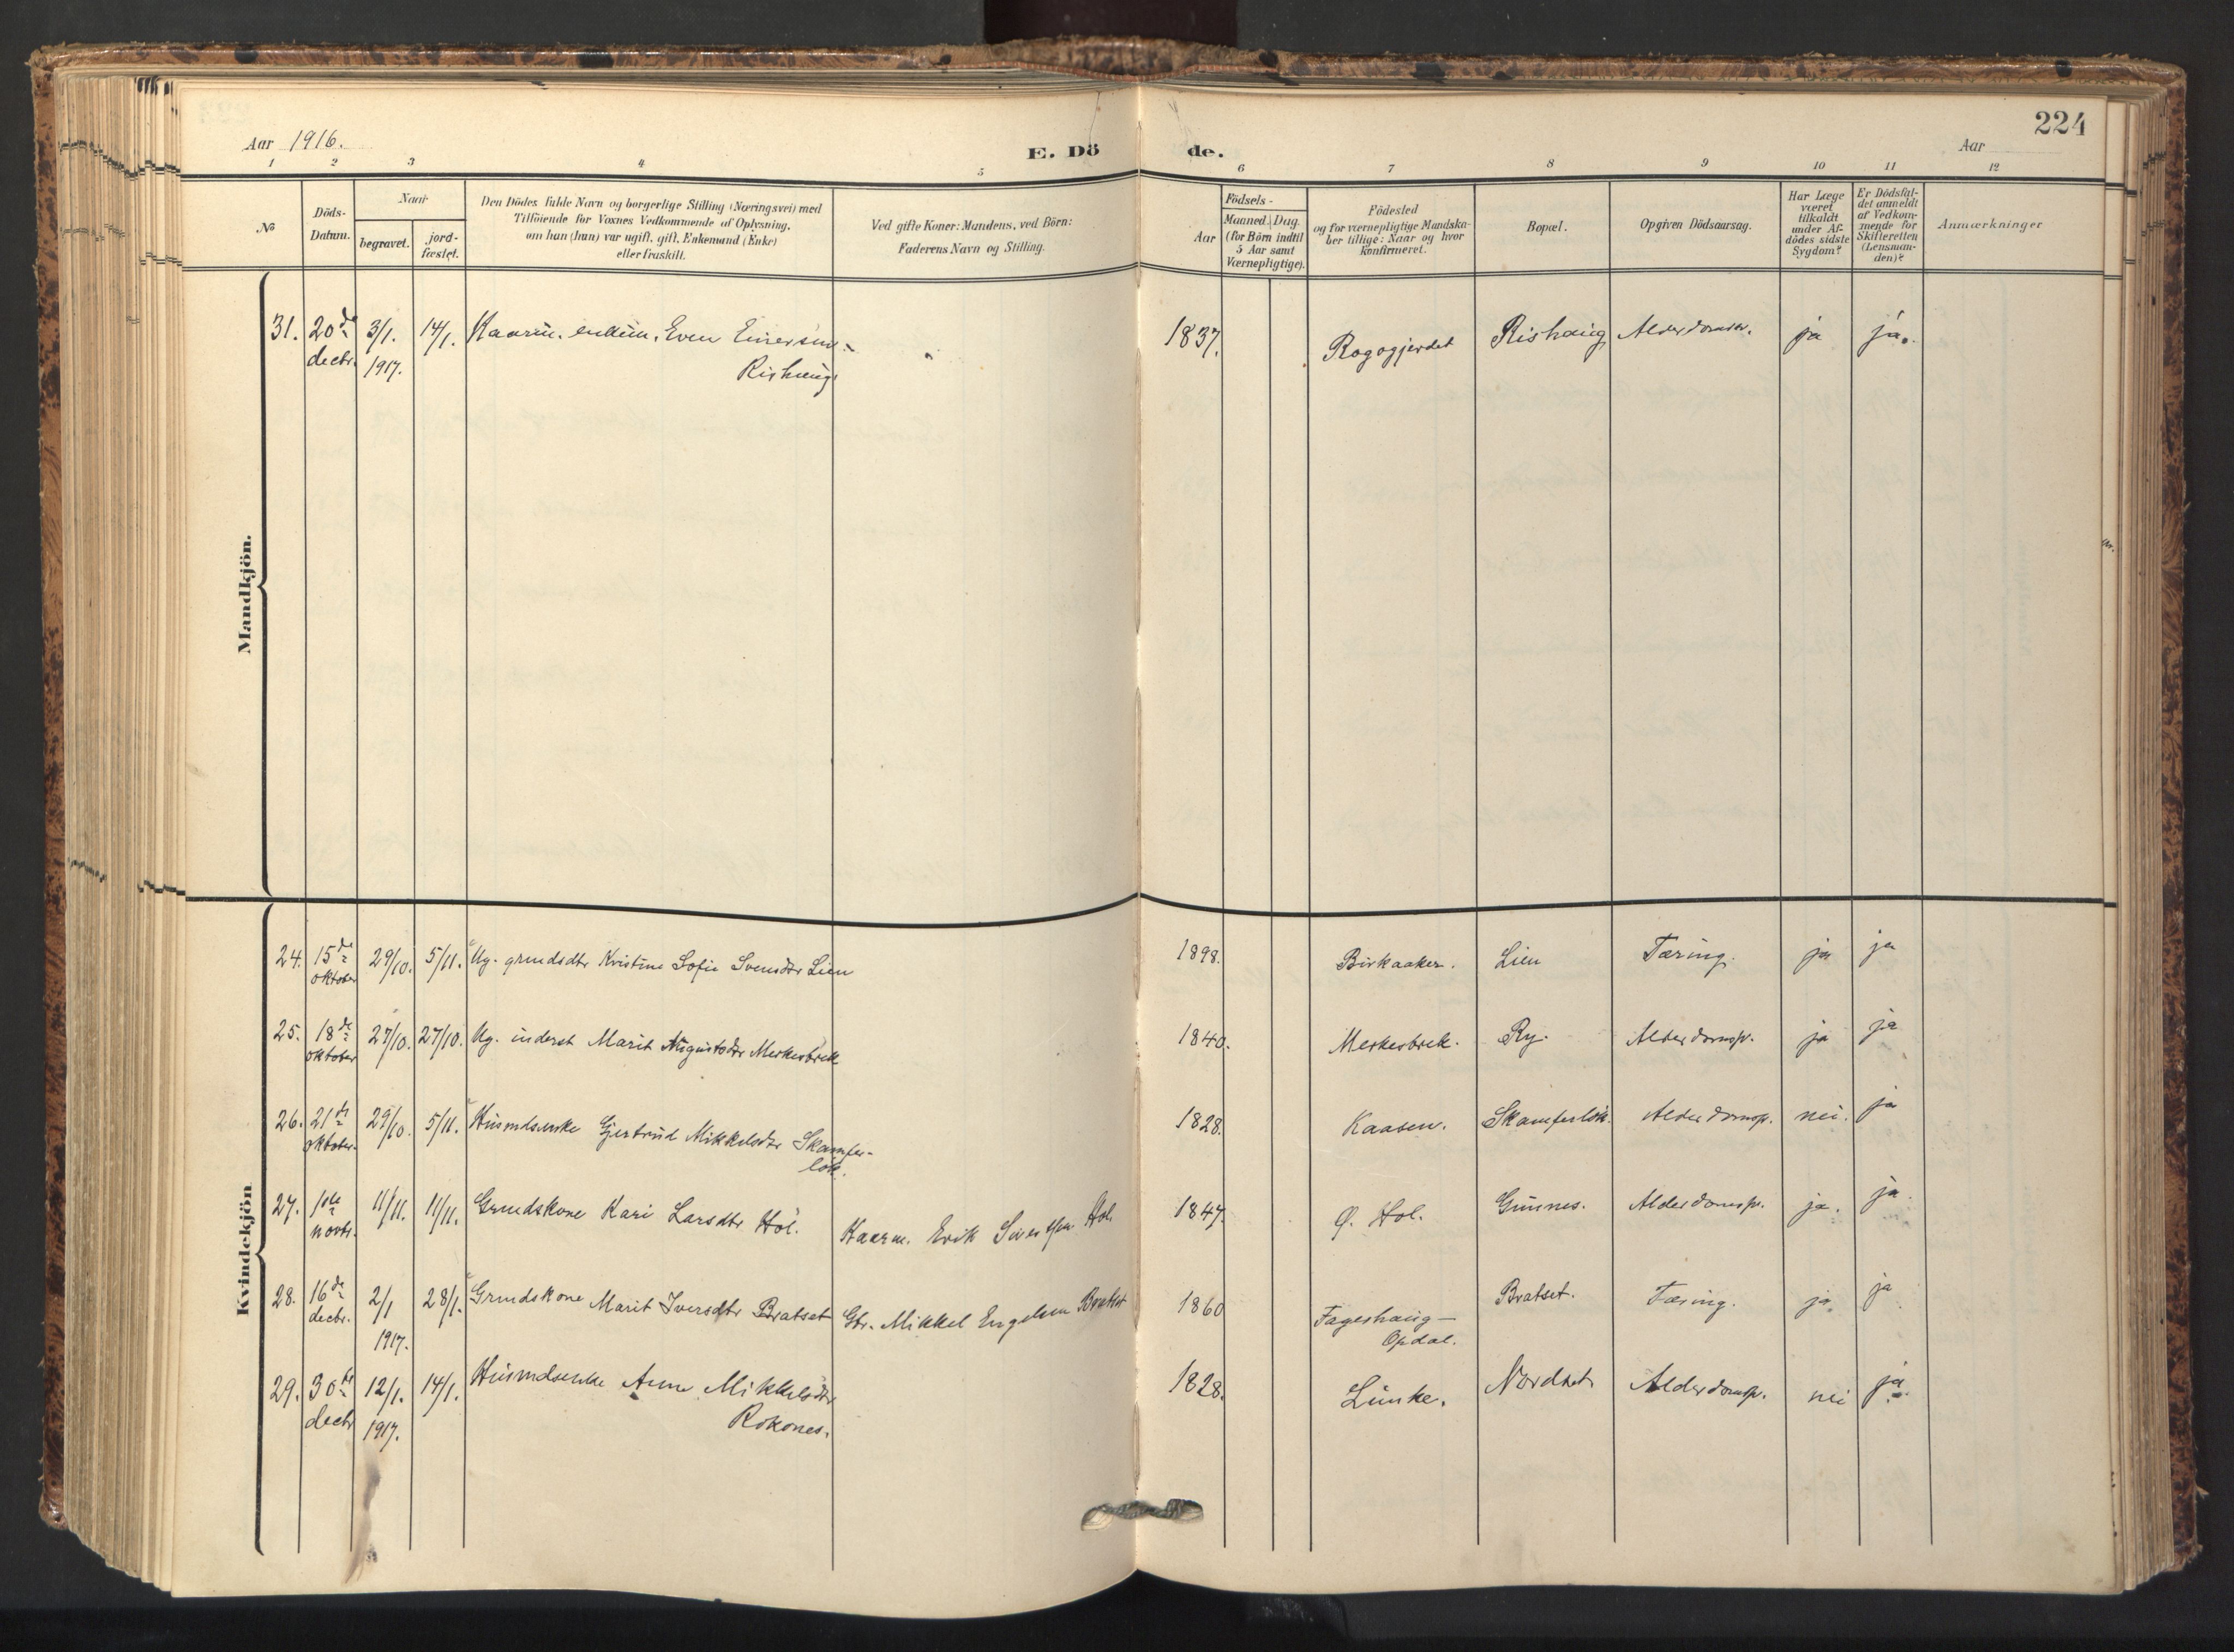 224
Aar 1916.
E. Dö de.
Aar
1 2 3 4 5 6 7 8 9 10 11 12
No
Döds-
Datum.
Naar
begravet.
jord-
fæstet.
Den Dödes fulde Navn og borgerlige Stilling (Næringsvei) med
Tilföiende for Voxnes Vedkommende af Oplysning,
om han (hun) var ugift, gift, Enkemand (Enke)
eller fraskilt.
Ved gifte Koner: Mandens, ved Börn:
Faderens Navn og Stilling.
Födsels-
Aar
Maaned. Dag.
(for Börn indtil
5 Aar samt
Værnepligtige).
Födested
og for værnepligtige Mandska-
ber tillige: Naar og hvor
konfirmeret.
Bopæl.
Opgiven Dödsaarsag.
Har Læge
været
tilkaldt
under Af-
dödes sidste
Sygdom?
Er Dödsfal-
det anmeldt
af Vedkom-
mende for
Skifteretten
(Lensman-
den)?
Anmærkninger
Mandkjön.
31. 20de 3/1. 14/1. Kaarm. enkem. Even Einersen 1837. Rogogjerdet Rishaug Alderdomssv. ja ja.
decbr. 1917. Rishaug
Kvindekjön
24. 15de 29/10. 5/11. Ug. grmdsdtr Kristine Sofie Svendsdtr Lien 1898. Birkaaker. Lien Tæring. ja ja
oktober
25. 18de 27/10. 27/10. Ug. inderst Marit Augustsdr Merkesbrek 1840. Merkesbrek. Ry. Alderdomssv. ja ja
oktober
26. 21de 29/10. 5/11. Husmdsenke Gjertrud Mikkelsdtr Skamfer- 1828. Kaasen. Skamferlök. Alderdomssv. nei. ja
oktober. lök.
27. 1ste 11/11. 11/11. Grmdskone Kari Larsdtr Hol. Kaarm. Erik Sivertsen Hol. 1847. Ø. Hol. Gunnes. Alderdomssv. ja. ja.
novbr.
28. 16de 2/1 28/1. Grmdskone Marit Iversdtr Bratset Gbr. Mikkel Engelsen Bratset 1860 Fageshaug- Bratset. Tæring. ja. ja
decbr. 1917. Opdal.
29. 30te 12/1. 14/1. Husmdsenke Anne Mikkelsdtr 1828. Lunke. Nordset. Alderdomssv. nei ja.
decbr 1917. Rokones.